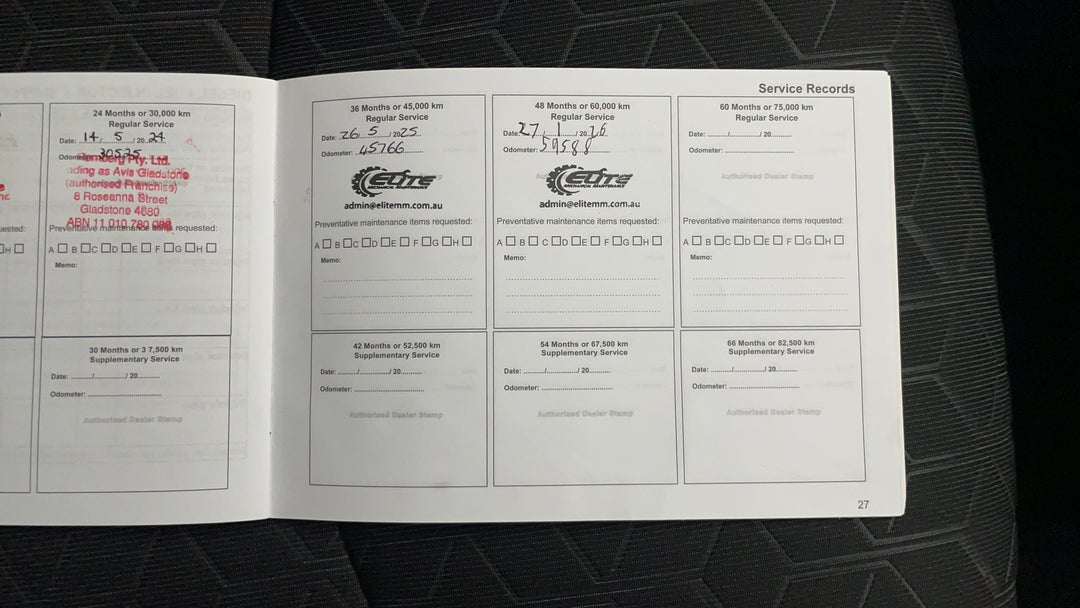 Service Records
24 Months or 30,000 km
Regular Service
Date: 14 / 5 / 20 24
Odometer: 30525
Pty. Ltd.
ading as Avis Gladstone
(authorised Franchise)
8 Roseanna Street
Gladstone 4680
ABN 11 010 780
Preventative maintenance items requested:
A B C D E F G H
Memo:
30 Months or 3 7,500 km
Supplementary Service
Date: ......./......./ 20.........
Odometer: ..............................
Authorised Dealer Stamp
uested:
H
36 Months or 45,000 km
Regular Service
Date: 26 / 5 / 2025
Odometer: 45766
ELITE
MECHANICAL MAINTENANCE
admin@elitemm.com.au
Preventative maintenance items requested:
A B C D E F G H
Memo:
48 Months or 60,000 km
Regular Service
Date: 27 / 1 / 20 26
Odometer: 59588
ELITE
MECHANICAL MAINTENANCE
admin@elitemm.com.au
Preventative maintenance items requested:
A B C D E F G H
Memo:
60 Months or 75,000 km
Regular Service
Date: ......./......./ 20.........
Odometer: ..............................
Authorised Dealer Stamp
Preventative maintenance items requested:
A B C D E F G H
Memo:
42 Months or 52,500 km
Supplementary Service
Date: ......./......./ 20.........
Odometer: ..............................
Authorised Dealer Stamp
54 Months or 67,500 km
Supplementary Service
Date: ......./......./ 20.........
Odometer: ..............................
Authorised Dealer Stamp
66 Months or 82,500 km
Supplementary Service
Date: ......./......./ 20.........
Odometer: ..............................
Authorised Dealer Stamp
27